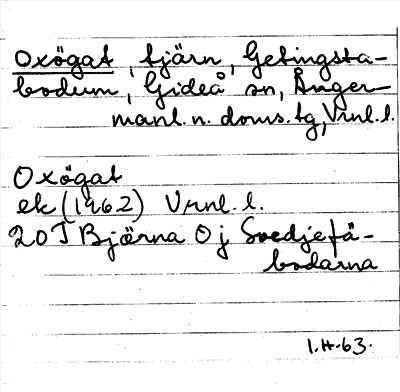 Oxögat, tjärn, Getingsta-
bodum, Gideå sn, Ånger-
manl. n. doms. tg, Vrnl. l.
Oxögat
ek (1962) Vrnl. l.
20 J Björna O j Svedjefä-
bodarna
1.H.63.